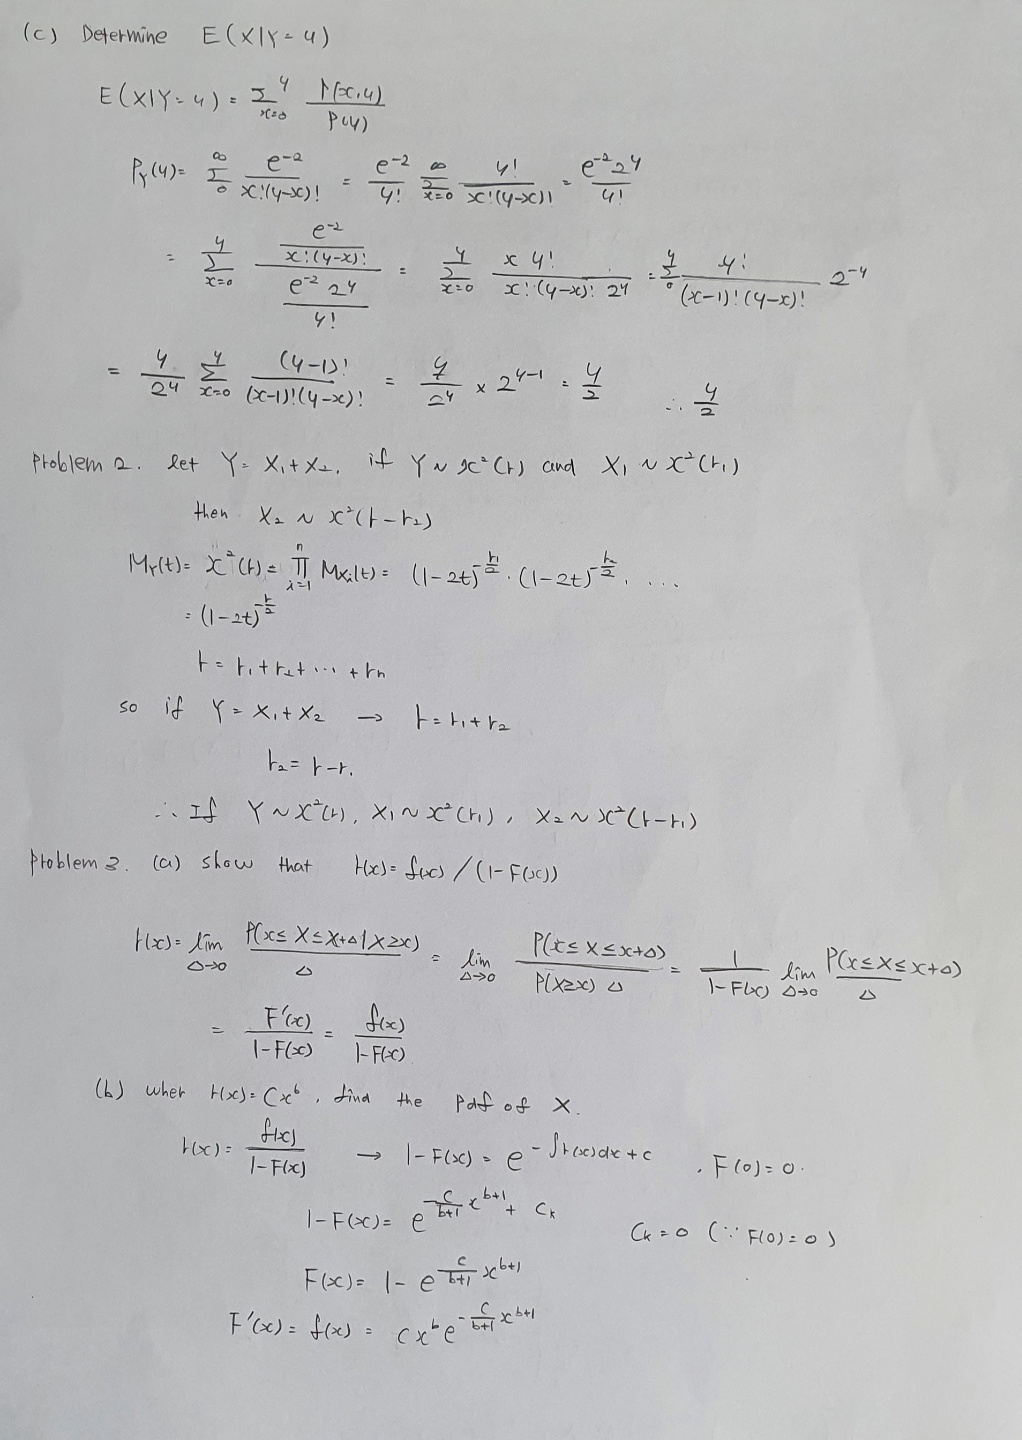 (c) Determine E(X|Y=y)
E(X|Y=y) = Σ_{x=0}^{y} P(x,y) / P(y)
P_Y(y) = Σ_{0}^{∞} e^{-2} / x!(y-x)! = e^{-2}/y! Σ_{x=0}^{∞} y! / x!(y-x)! = e^{-2} 2^y / y!
= Σ_{x=0}^{y} (e^{-2} / x!(y-x)!) / (e^{-2} 2^y / y!) = Σ_{x=0}^{y} x y! / x!(y-x)! 2^y = Σ_{0}^{y} y! / (x-1)!(y-x)! 2^{-y}
= y/2^y Σ_{x=0}^{y} (y-1)! / (x-1)!(y-x)! = y/2^y × 2^{y-1} = y/2 ∴ y/2
Problem 2. let Y = X₁+X₂, if Y ~ χ²(r) and X₁ ~ χ²(r₁)
then X₂ ~ χ²(r-r₂)
M_Y(t) = χ²(r) = Π_{i=1}^{n} M_{Xi}(t) = (1-2t)^{-r₁/2} · (1-2t)^{-r₂/2} . ...
= (1-2t)^{-r/2}
r = r₁+r₂+ ... +rn
so if Y = X₁+X₂ → r = r₁+r₂
r₂ = r-r₁
∴ If Y ~ χ²(r), X₁ ~ χ²(r₁), X₂ ~ χ²(r-r₁)
Problem 3. (a) show that r(x) = f(x) / (1-F(x))
r(x) = lim_{Δ→0} P(x≤X≤x+Δ|X≥x) / Δ = lim_{Δ→0} P(x≤X≤x+Δ) / P(X≥x) Δ = 1 / 1-F(x) lim_{Δ→0} P(x≤X≤x+Δ) / Δ
= F'(x) / 1-F(x) = f(x) / 1-F(x)
(b) when r(x) = Cx^b, find the Pdf of X.
r(x) = f(x) / 1-F(x) → 1-F(x) = e^{-∫r(x)dx+c} , F(0)=0.
1-F(x) = e^{-c/(b+1) x^{b+1} + C_k} C_k=0 (∵ F(0)=0)
F(x) = 1-e^{-c/(b+1) x^{b+1}}
F'(x) = f(x) = cx^b e^{-c/(b+1) x^{b+1}}